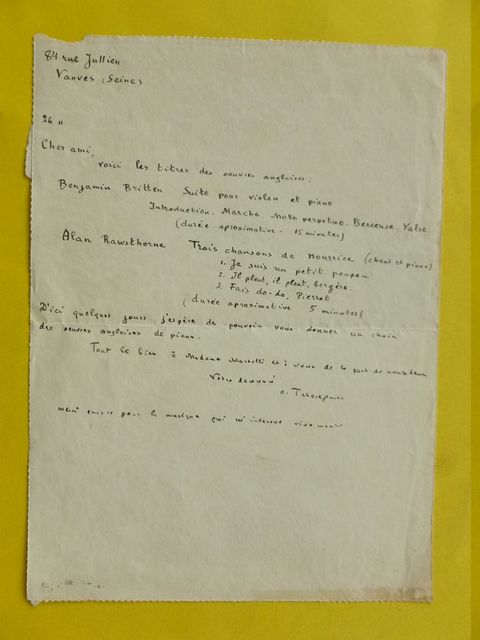 84 rue Jullien
Vanves (Seine)
26 "
Cher ami,
voici les titres des oeuvres anglaises:
Benjamin Britten Suite pour violon et piano
Introduction. Marche Moto perpetuo. Berceuse. Valse.
(durée aproximative - 15 minutes)
Alan Rawsthorne Trois chansons de Nourrice (chant et piano)
1. Je suis un petit poupon
2. Il pleut, il pleut, bergère
3. Fais do-do, Pierrot
(durée aproximative 5 minutes)
D'ici quelques jours j'espère de pouvoir vous donner un choix
des oeuvres anglaises de piano.
Tout le bien à Madame et à vous de la part de nous deux
Votre dévoué
merci encore pour la musique qui m'interesse vivement